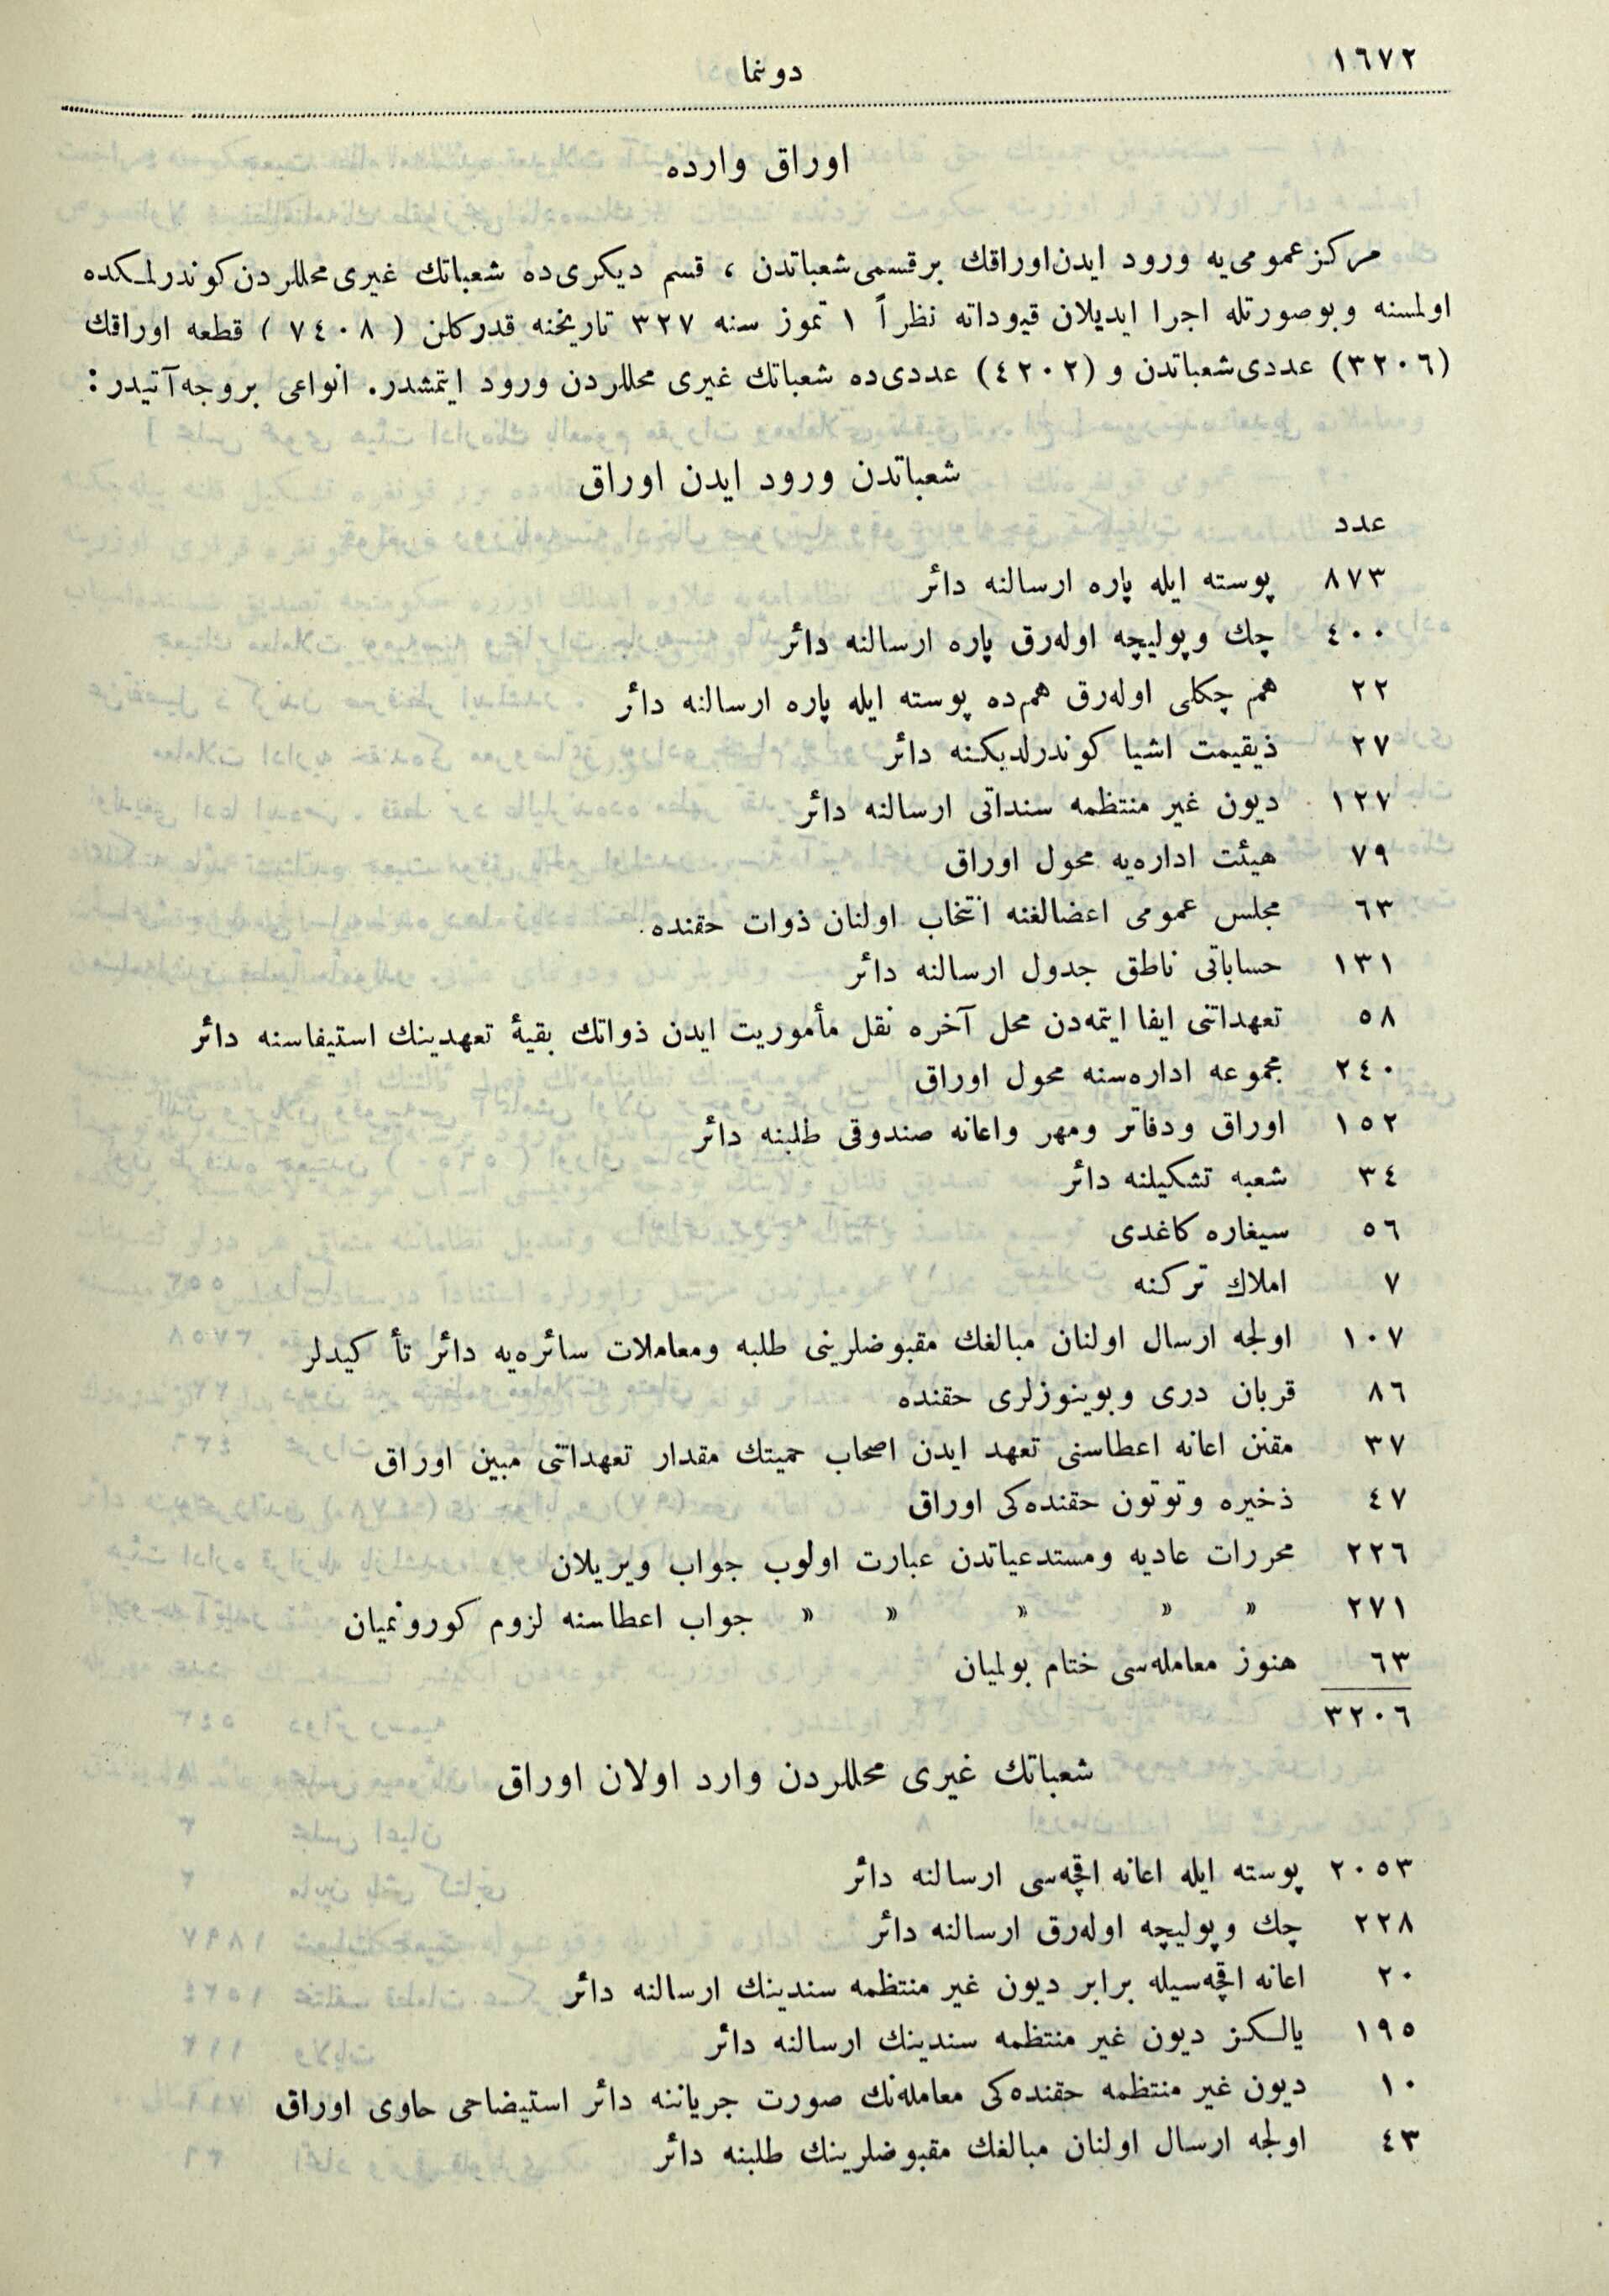 ١٦٧٢
دونما
اوراق وارده
مركز عمومی‌يه ورود ايدن اوراقك برقسمی شعباتدن ، قسم ديكری‌ده شعباتك غيری محللردن كوندرلمكده
اولمسنه و بوصورتله اجرا ايديلان قيوداته نظراً ١ تموز سنه ٣٢٧ تاريخنه قدركلن ( ٧٤٠٨ ) قطعه اوراقك
(٣٢٠٦) عددی شعباتدن و (٤٢٠٢) عددی‌ده شعباتك غيری محللردن ورود ايتمشدر. انواعی بروجه آتيدر :
شعباتدن ورود ايدن اوراق
عدد
٨٧٣ پوسته ايله پاره ارسالنه دائر
٤٠٠ چك و پوليچه اوله‌رق پاره ارسالنه دائر
٢٢ هم چكلی اوله‌رق هم‌ده پوسته ايله پاره ارسالنه دائر
٢٧ ذيقيمت اشيا كوندرلديكنه دائر
١٢٧ ديون غير منتظمه سنداتی ارسالنه دائر
٧٩ هيئت اداره‌يه محول اوراق
٦٣ مجلس عمومی اعضالغنه انتخاب اولنان ذوات حقنده
١٣١ حساباتی ناطق جدول ارسالنه دائر
٥٨ تعهداتنی ايفا ايتمه‌دن محل آخره نقل مأموريت ايدن ذواتك بقيۀ تعهدينك استيفاسنه دائر
٢٤٠ مجموعه اداره‌سنه محول اوراق
١٥٢ اوراق ودفاتر ومهر واعانه صندوقی طلبنه دائر
٣٤ شعبه تشكيلنه دائر
٥٦ سيغاره كاغدی
٧ املاك تركنه
١٠٧ اولجه ارسال اولنان مبالغك مقبوضلرينی طلبه ومعاملات سائره‌يه دائر تأكيدلر
٨٦ قربان دری و بوينوزلری حقنده
٣٧ مقنن اعانه اعطاسنی تعهد ايدن اصحاب حميتك مقدار تعهداتنی مبين اوراق
٤٧ ذخيره و توتون حقنده‌كی اوراق
٢٢٦ محررات عاديه ومستدعياتدن عبارت اولوب جواب ويريلان
٢٧١ » » » » » جواب اعطاسنه لزوم كورونميان
٦٣ هنوز معامله‌سی ختام بولميان
٣٢٠٦
شعباتك غيری محللردن وارد اولان اوراق
٢٠٥٣ پوسته ايله اعانه اقچه‌سی ارسالنه دائر
٢٢٨ چك و پوليچه اوله‌رق ارسالنه دائر
٢٠ اعانه اقچه‌سيله برابر ديون غير منتظمه سندينك ارسالنه دائر
١٩٥ يالكز ديون غير منتظمه سندينك ارسالنه دائر
١٠ ديون غير منتظمه حقنده‌كی معامله‌نك صورت جرياننه دائر استيضاحی حاوی اوراق
٤٣ اولجه ارسال اولنان مبالغك مقبوضلرينك طلبنه دائر